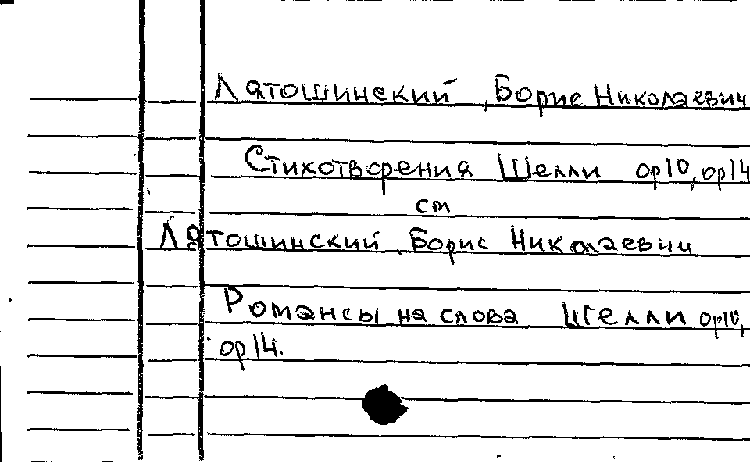 Лятошинский, Борис Николаевич
Стихотворения Шелли ор10, ор14
см
Лятошинский, Борис Николаевич
Романсы на слова Шелли ор10,
ор14.